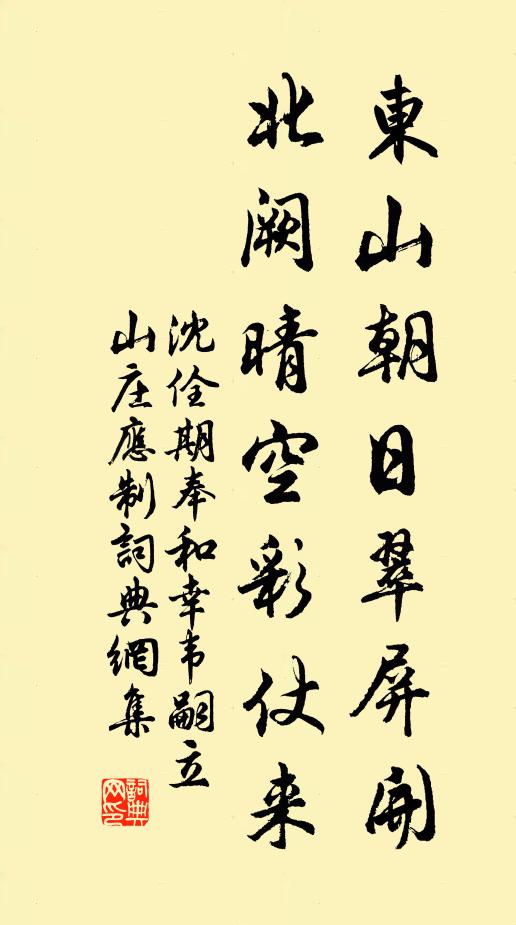 東山朝日翠屏開
北阙晴空彩仗来
沈佺期奉和幸韦嗣立
山庄應制詞典網集
詞典
网印